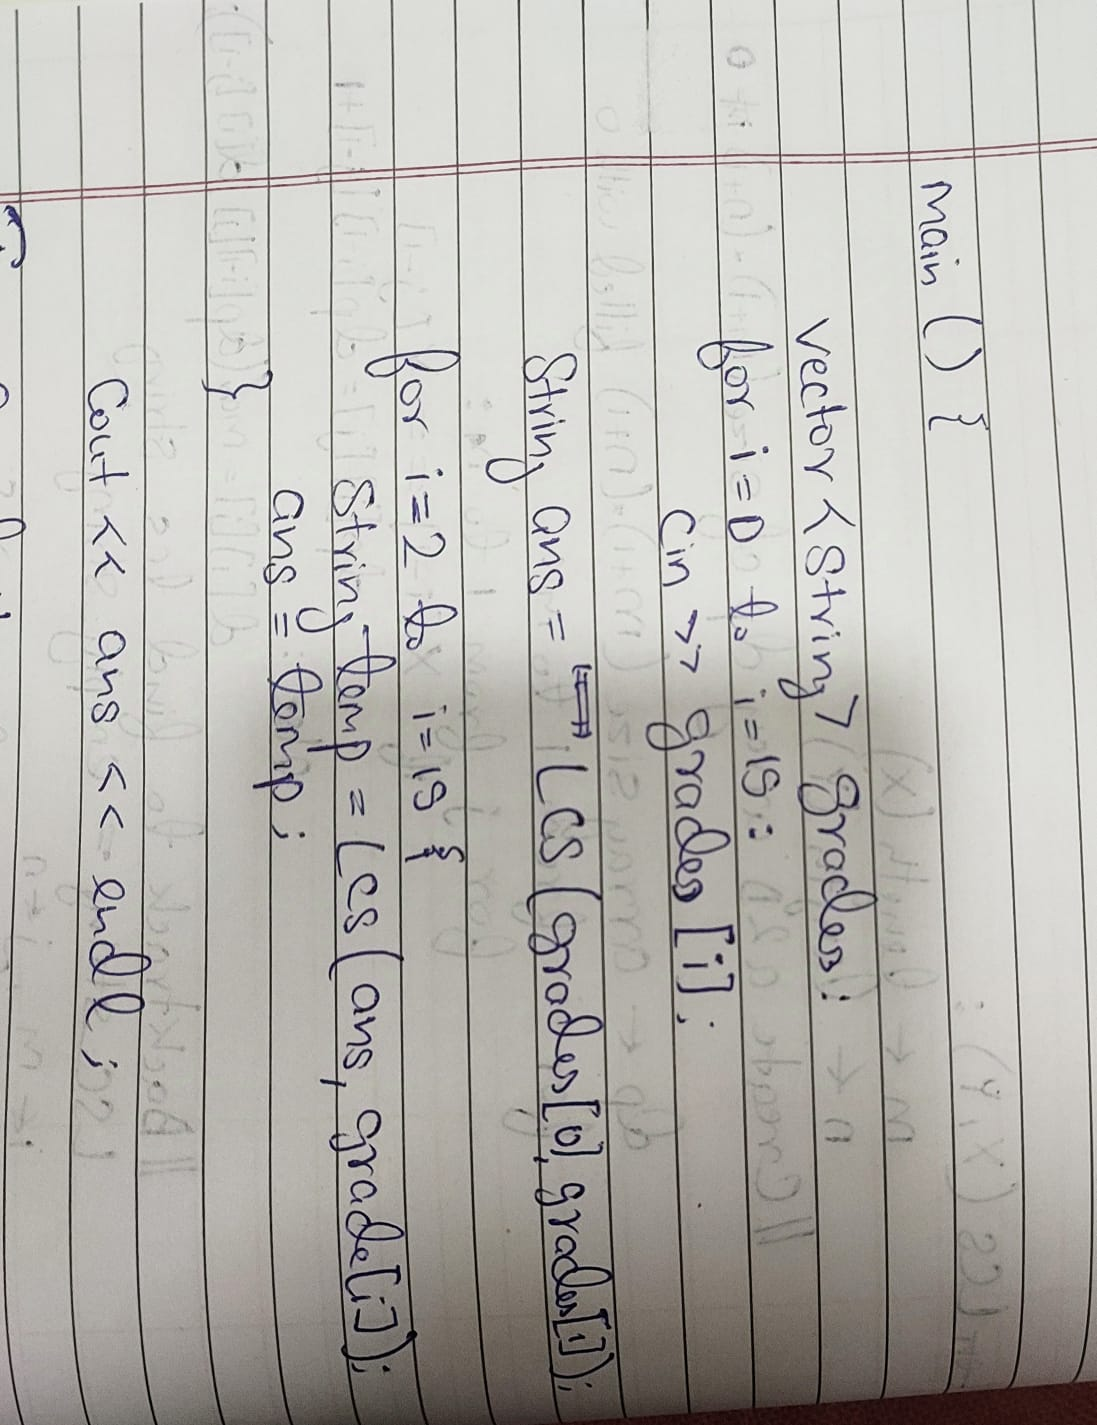 main () {
vector < string > grades;
for i = 0 to i = 19 :
cin >> grades [i];
string ans = LCS (grades[0], grades[1]);
for i = 2 to i = 19 {
string temp = LCS (ans, grade[i]);
ans = temp;
}
cout << ans << endl ;